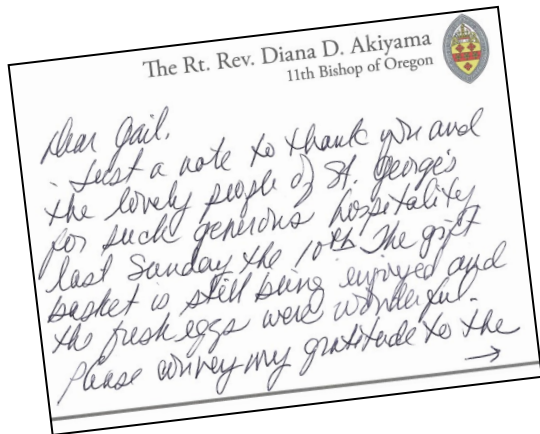 The Rt. Rev. Diana D. Akiyama
11th Bishop of Oregon
Dear Gail,
Just a note to thank you and
the lovely people of St. George's
for such generous hospitality
last Sunday the 10th. The gift
basket is still being enjoyed and
the fresh eggs were wonderful.
Please convey my gratitude to the
→